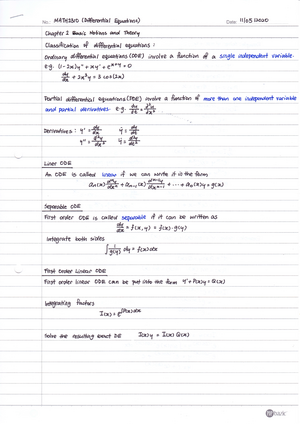 No.: MATH3310 (Differential Equations) Date: 11/05/2020
Chapter 1 Basic Notions and Theory
Classification of differential equations :
Ordinary differential equations (ODE) involve a function of a single independent variable.
e.g. (1-2x)y" + xy' + e^x + y = 0
dy/dx + 3x²y = 3 cos(2x)
Partial differential equations (PDE) involve a function of more than one independent variable
and partial derivatives. e.g.
Derivatives : y' = dy/dx ẏ = dy/dt
y" = d²y/dx² ÿ = d²y/dt²
Linear ODE
An ODE is called linear if we can write it in the form
aₙ(x) dⁿy/dxⁿ + aₙ₋₁(x) dⁿ⁻¹y/dxⁿ⁻¹ + ... + a₀(x)y = g(x)
Separable ODE
First order ODE is called separable if it can be written as
dy/dx = f(x,y) = f(x)·g(y)
Integrate both sides
∫ 1/g(y) dy = ∫ f(x) dx
First Order Linear ODE
First order linear ODE can be put into the form y' + P(x)y = Q(x)
Integrating factors
I(x) = e^∫P(x)dx
Solve the resulting exact DE I(x)y = I(x)Q(x)